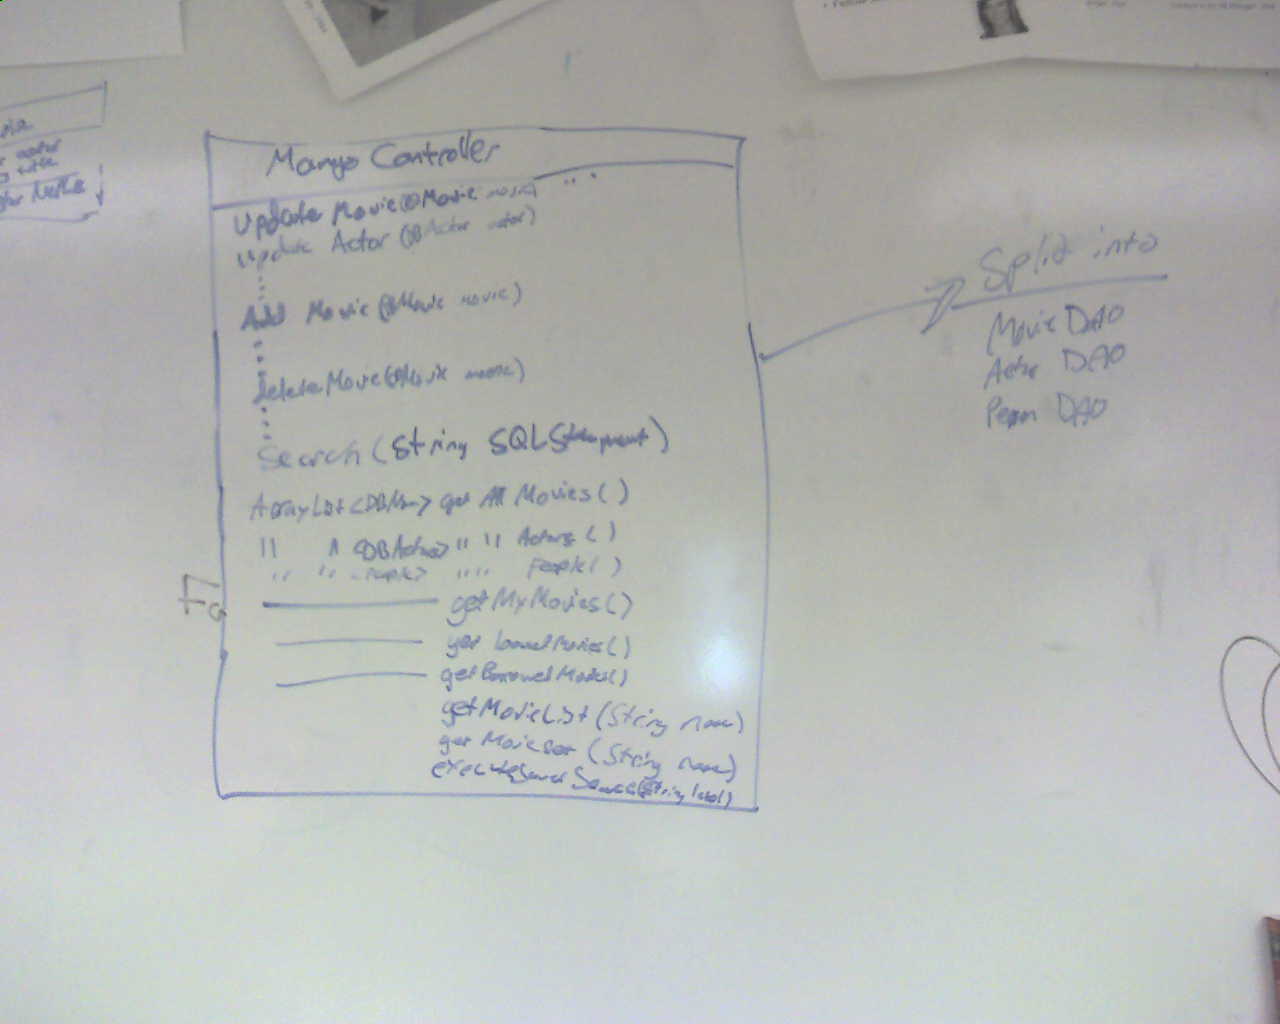 Mango Controller
Update Movie(DBMovie movie) ...
Update Actor (DBActor actor)
Add Movie (DBMovie movie)
deleteMovie(DBMovie movie)
Search (String SQLStatement)
ArrayList<DBMov> get All Movies( )
" " <DBActor> " " Actors ( )
" " <People> " " People( )
getMyMovies( )
get LoanedMovies( )
getBorrowedMovies( )
getMovieList (String name)
get MovieSet (String name)
executeSavedSearch(String label)
Split into
Movie DAO
Actor DAO
Person DAO